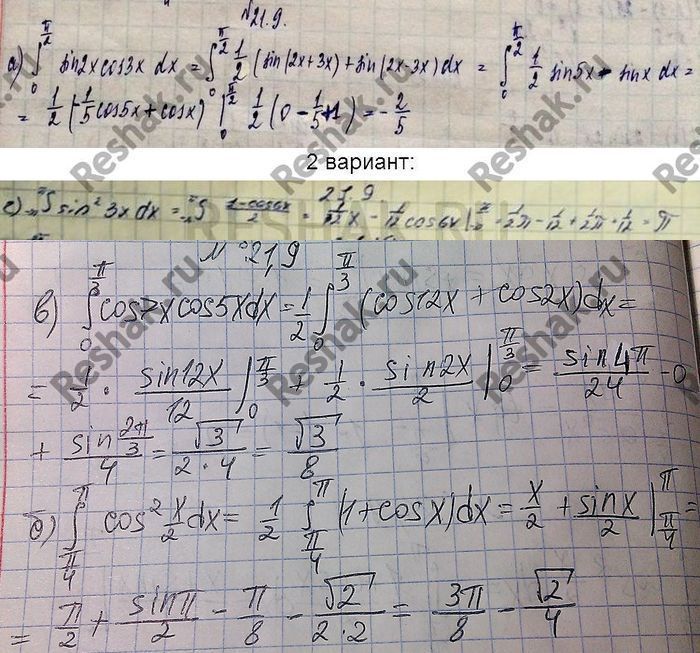 №21.9.
а) ∫₀^{π/2} sin2x cos3x dx = ∫₀^{π/2} 1/2 (sin(2x+3x) + sin(2x-3x) dx = ∫₀^{π/2} 1/2 sin5x - sinx dx =
= 1/2 (-1/5 cos5x + cosx) |₀^{π/2} 1/2 (0 - 1/5 + 1) = -2/5
2 вариант:
21.9
∫ sin² 3x dx = ∫ (1-cos6x)/2 = 1/2 x - 1/12 cos6x | = 1/2 π - 1/12 + 1/2 π + 1/12 = π
№ 21,9
в) ∫₀^{π/3} cos7x cos5x dx = 1/2 ∫₀^{π/3} (cos12x + cos2x) dx =
= 1/2 · sin12x/12 |₀^{π/3} + 1/2 · sin2x/2 |₀^{π/3} = sin4π/24 - 0
+ sin(2π/3)/4 = √3/(2·4) = √3/8
б) ∫_{π/4}^{π} cos² x/2 dx = 1/2 ∫_{π/4}^{π} (1+cosx) dx = x/2 + sinx/2 |_{π/4}^{π} =
= π/2 + sinπ/2 - π/8 - √2/(2·2) = 3π/8 - √2/4
Reshak.ru